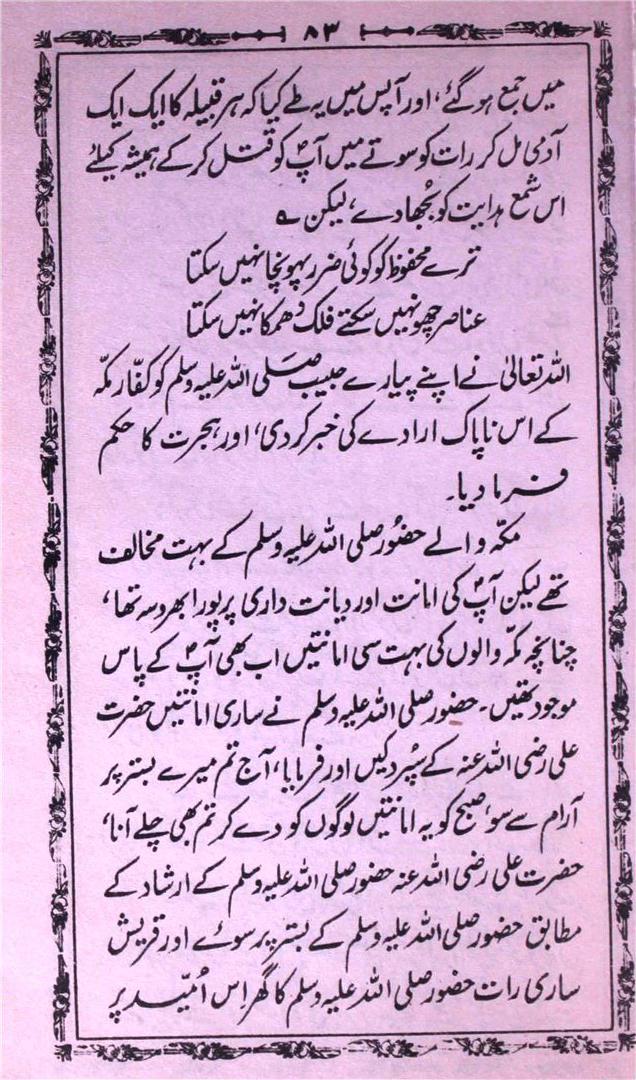 ۸۳
میں جمع ہو گئے، اور آپس میں یہ طے کیا کہ ہر قبیلہ کا ایک ایک
آدمی مل کر رات کو سوتے میں آپؐ کو قتل کر کے ہمیشہ کیلئے
اس شمع ہدایت کو بُجھا دے، لیکن ؎
ترے محفوظ کو کوئی ضرر پہونچا نہیں سکتا
عناصر چھو نہیں سکتے فلک دھمکا نہیں سکتا
اللہ تعالیٰ نے اپنے پیارے حبیب صلی اللہ علیہ وسلم کو کفّار مکہ
کے اس ناپاک ارادے کی خبر کر دی، اور ہجرت کا حکم
فرما دیا۔
مکہ والے حضور صلی اللہ علیہ وسلم کے بہت مخالف
تھے لیکن آپؐ کی امانت اور دیانت داری پر پورا بھروسہ تھا،
چنانچہ مکہ والوں کی بہت سی امانتیں اب بھی آپؐ کے پاس
موجود تھیں۔ حضور صلی اللہ علیہ وسلم نے ساری امانتیں حضرت
علی رضی اللہ عنہ کے سپُرد کیں اور فرمایا، آج تم میرے بستر پر
آرام سے سو، صبح کو یہ امانتیں لوگوں کو دے کر تم بھی چلے آنا،
حضرت علی رضی اللہ عنہ حضور صلی اللہ علیہ وسلم کے ارشاد کے
مطابق حضور صلی اللہ علیہ وسلم کے بستر پر سوئے اور قریش
ساری رات حضور صلی اللہ علیہ وسلم کا گھر اِس اُمّید پر